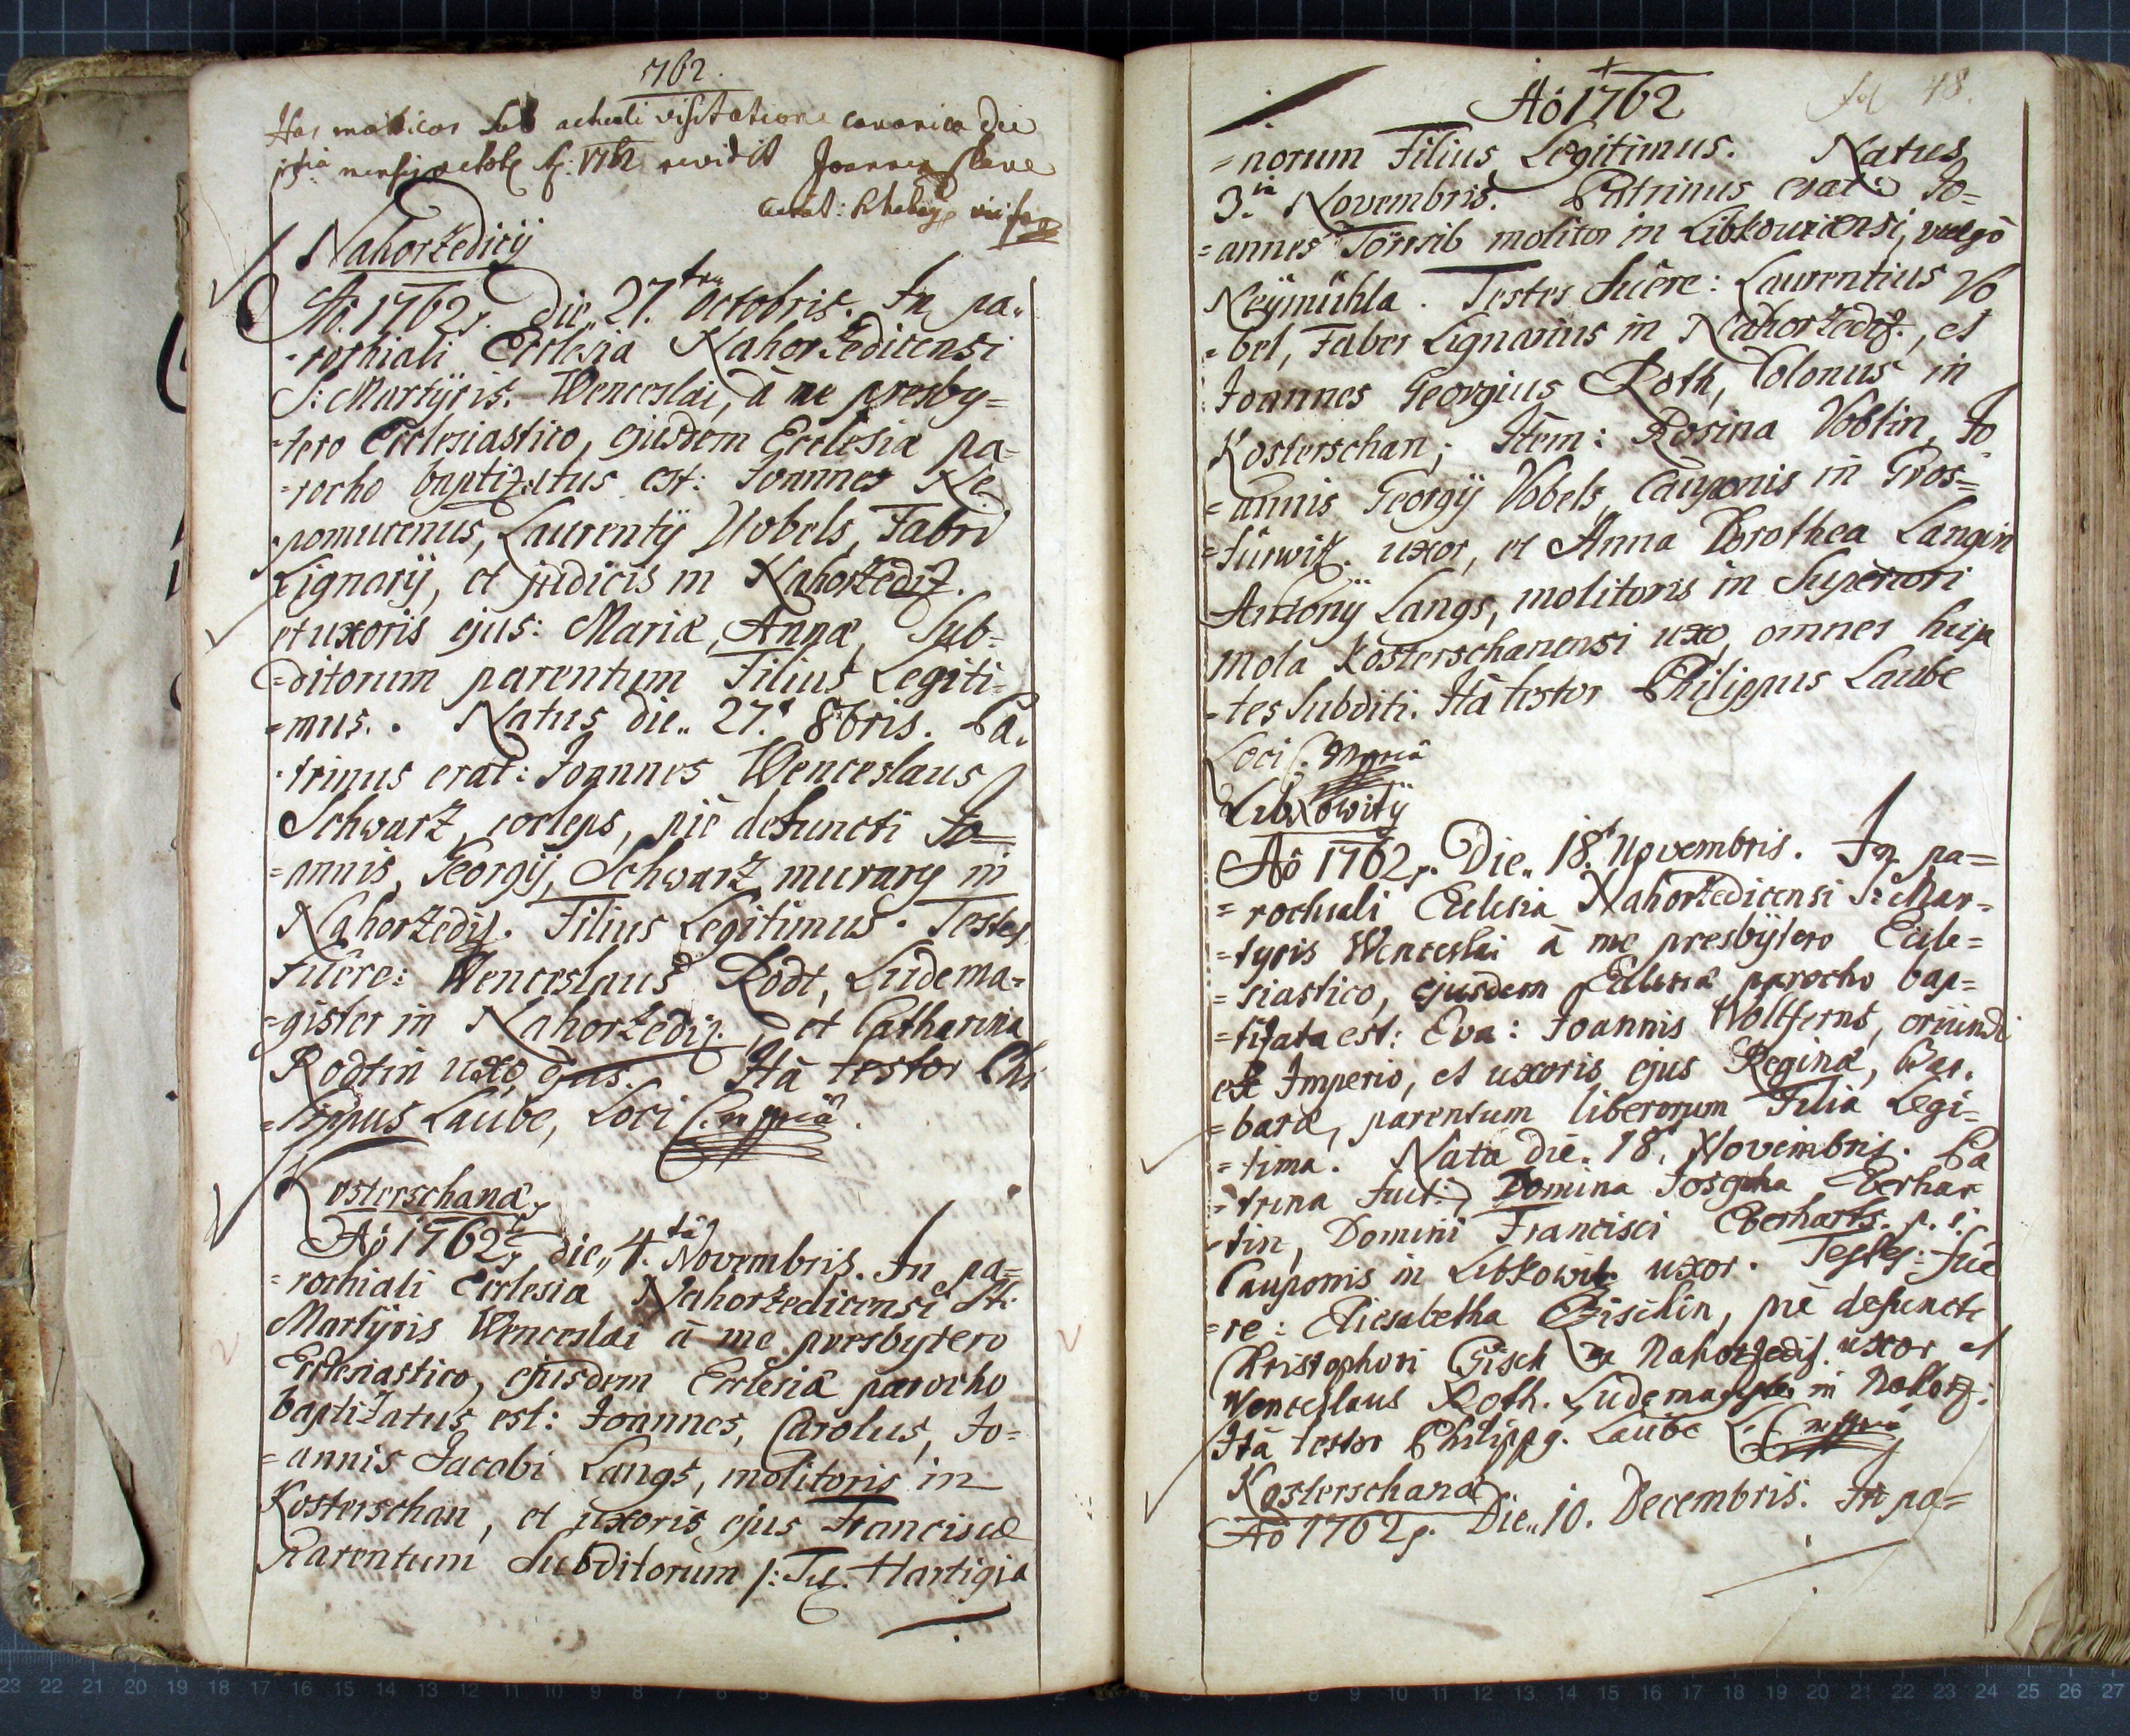 1762.
Has matricas sub actuali visitatione canonica die
mensis octobr. A: 1762 revidit Joannes
Nahorżedicÿ
Aō. 1762. Die 27. Octobris. In pa-
-rochiali Ecclesia Nahorżedicensi
S: Martÿris Wenceslai, à me presby=
-tero Ecclesiastico, ejusdem Ecclesiæ pa-
-rocho baptizatus est: Joannes Ne
-pomucenus, Laurentÿ Vobels, Fabri
Lignarÿ, et judicis in Nahorżediz.
et uxoris ejus: Mariæ, Annæ, Sub-
=ditorum parentum Filius Legiti-
=mus. Natus die.. 27. 8bris. Pa-
-trinus erat: Joannes Wenceslaus
Schwarz, cœlebs, piè defuncti Jo=
=annis, Georgÿ, Schwarz murarÿ in
Nahorżediz. Filius Legitimus. Testes
Fuêre: Wenceslaus Rodt, Ludema-
-gister in Nahorżediz., et Catharina
Rodtin uxo ejus. Ità testor Phi
-lippus Laube, Loci C. mpriâ.
Kosterschanæ
Aō 1762 die,, 4.tâ Novembris. In pa=
=rochiali Ecclesia Nahorżedicensi Sti.
Martÿris Wenceslai à me presbytero
Ecclesiastico, ejusdem Ecclesiæ parocho
baptizatus est: Joannes, Carolus, Jo=
=annis Jacobi Langs, molitoris in
Kosterschan, et uxoris ejus Franciscæ
Parentum Subditorum /: Tit. Hartigia
Aō 1762
fol 48.
=norum Filius Legitimus. Natus
3.ia Novembris. Patrinus erat Jo=
=annes molitor in Libkovicensi, vulgò
Neÿmühla. Testes fuêre: Laurentius Vo
=bel, Faber Lignarius in Nahorżediz., et
Joannes Georgius Roth, Colonus in
Kosterschan; Item: Rosina Voblin, Jo
=annis Georgÿ Vobels, Cauponis in Gros=
uxor, et Anna Dorothea Langin
Antonÿ Langs, molitoris in Superiori
mola Kosterschanensi uxo, omnes huja
-tes Subditi. Ità testor Philippus Laube
Loci C. Mpriâ
Libkowitÿ
Aō 1762. Die.. 18. Novembris. In pa=
=rochiali Ecclesia Nahorżedicensi S: Mar-
-tyris Wenceslai à me presbÿtero Eccle=
=siastico, ejusdem Ecclesiæ parocho bap=
=tizata est: Eva: Joannis Wolfferns, oriundi
ex Imperio, et uxoris ejus Reginæ, Bar.
=baræ, parentum liberorum Filia Legi-
=tima. Nata die. 18. Novembris. Pa
-trina fuit: Domina Josepha Eberhar
-tin, Domini Francisci Eberharts. p. t.
Cauponis in Libkowiz uxor. Testes: fue
-re: Eliesabetha Gischin, piè defuncti
Christophori Gisch in Nahorżediz. uxor et
Wenceslaus Roth. Ludemagister in Nahorz.
Ità testor Philipp g. Laube L. C mpriâ
Kosterschanæ
Aō 1762. Die.. 10. Decembris. In pa=